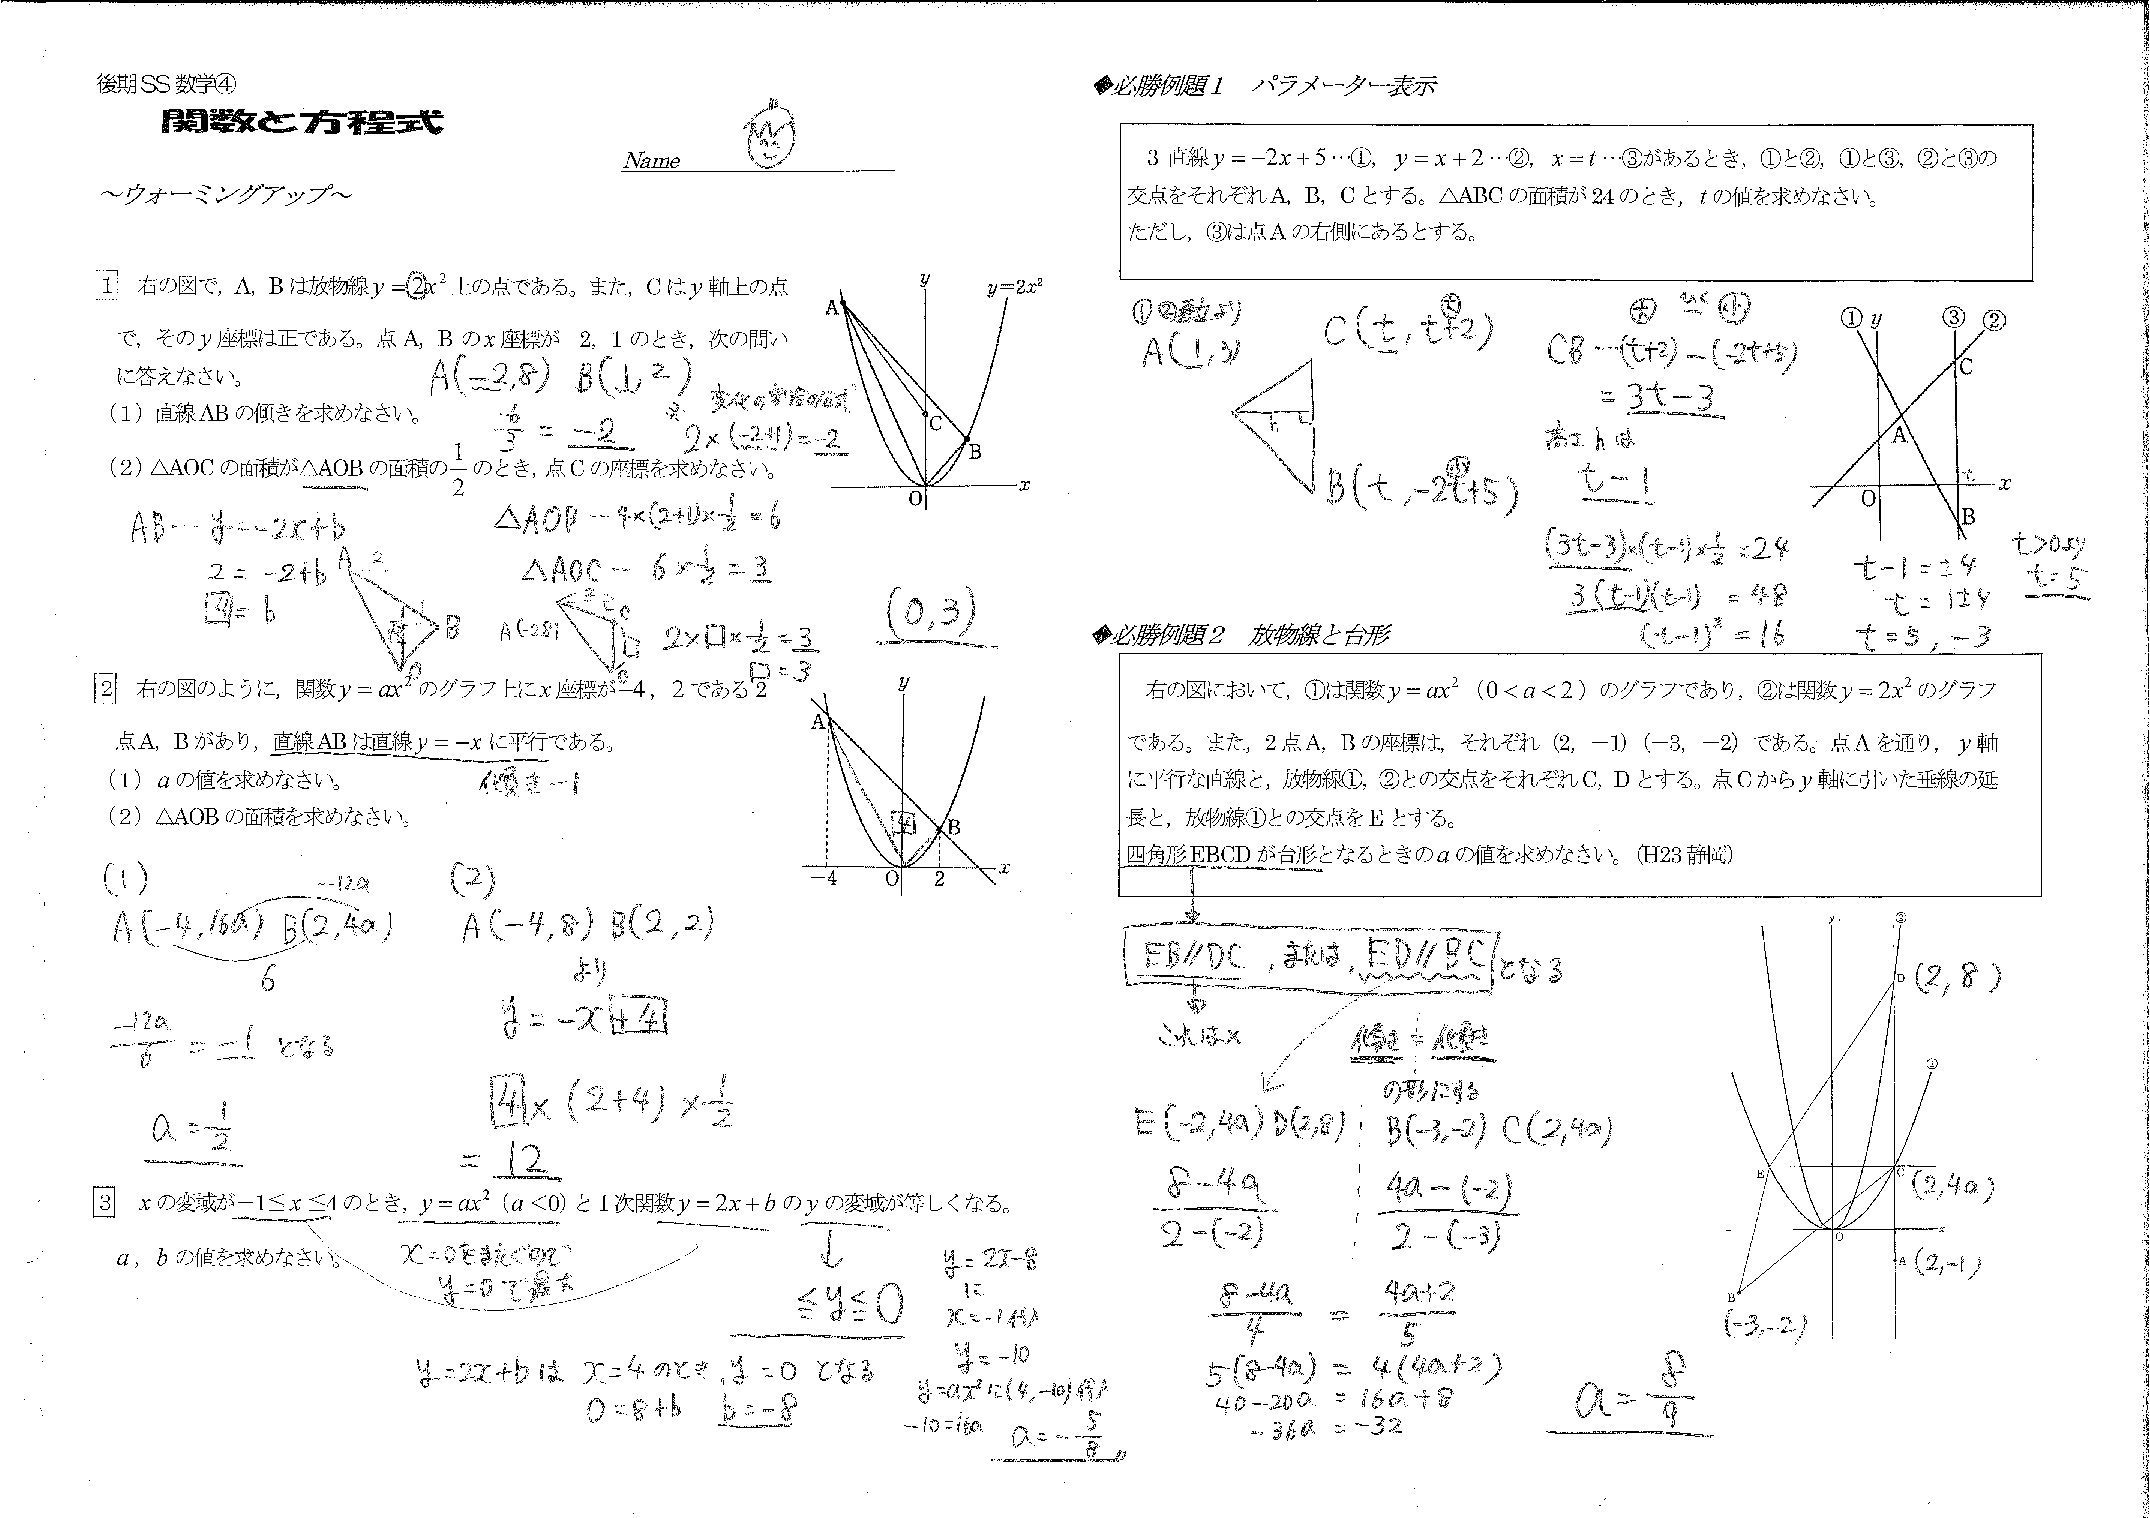 後期SS数学④
関数と方程式
Name
～ウォーミングアップ～
1 右の図で，A，Bは放物線y＝2x²上の点である。また，Cはy軸上の点
で，そのy座標は正である。点A，Bのx座標が 2，1のとき，次の問い
に答えなさい。
A(-2,8) B(1,2)
(1) 直線ABの傾きを求めなさい。
-6/3 = -2
2×(-2+1)=-2
(2) △AOCの面積が△AOBの面積の1/2のとき，点Cの座標を求めなさい。
AB… y=-2x+b
2=-2+b
4=b
△AOB … 4×(2+1)×1/2=6
△AOC … 6×1/2=3
A 2 B
A(-2,8)
2×□×1/2=3
□=3
(0,3)
y y=2x²
A C B O x
2 右の図のように，関数y＝ax²のグラフ上にx座標が-4，2である2
点A，Bがあり，直線ABは直線y＝－xに平行である。
(1) aの値を求めなさい。
傾き-1
(2) △AOBの面積を求めなさい。
y A 4 B
-4 O 2 x
(1)
-12a
A(-4,16a) B(2,4a)
6
-12a/6 = -1 となる
a=1/2
(2)
A(-4,8) B(2,2)
より
y=-x+4
4×(2+4)×1/2
=12
3 xの変域が－1≦x≦4のとき，y＝ax²（a<0）と1次関数y＝2x＋bのyの変域が等しくなる。
a，bの値を求めなさい。
x=0をまたぐので
y=0で最大
≦y≦0
y=2x+bは x=4のとき，y=0となる
0=8+b b=-8
y=2x-8
に
x=-1代入
y=-10
y=ax²に(4,-10)代入
-10=16a
a=-5/8
◆必勝例題1 パラメーター表示
3直線y＝－2x＋5…①，y＝x＋2…②，x＝t…③があるとき，①と②，①と③，②と③の
交点をそれぞれA，B，Cとする。△ABCの面積が24のとき，tの値を求めなさい。
ただし，③は点Aの右側にあるとする。
A(1,3)
C(t,t+2)
h
B(t,-2t+5)
大 ひく 小
CB…(t+2)-(-2t+5)
=3t-3
高さhは
t-1
(3t-3)×(t-1)×1/2=24
3(t-1)(t-1)=48
(t-1)²=16
① y ③ ②
C A t O x B
t-1=±4
t=1±4
t=5,-3
t>0より
t=5
◆必勝例題2 放物線と台形
右の図において，①は関数y＝ax²（0<a<2）のグラフであり，②は関数y＝2x²のグラフ
である。また，2点A，Bの座標は，それぞれ（2，－1）（－3，－2）である。点Aを通り，y軸
に平行な直線と，放物線①，②との交点をそれぞれC，Dとする。点Cからy軸に引いた垂線の延
長と，放物線①との交点をEとする。
四角形EBCDが台形となるときのaの値を求めなさい。（H23静岡）
EB//DC，または，ED//BCとなる
これは×
傾き＝傾き
の形にする
E(-2,4a) D(2,8) B(-3,-2) C(2,4a)
8-4a/2-(-2) 4a-(-2)/2-(-3)
8-4a/4 = 4a+2/5
5(8-4a)=4(4a+2)
40-20a=16a+8
-36a=-32
a=8/9
②
D (2,8)
①
E C (2,4a)
O
A (2,-1)
B
(-3,-2)